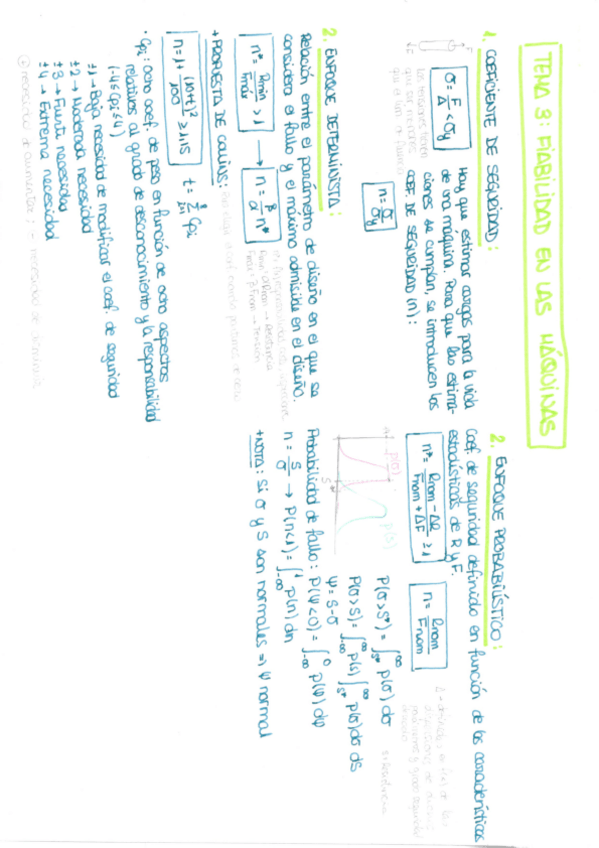 TEMA 3: FIABILIDAD EN LAS MÁQUINAS
1. COEFICIENTE DE SEGURIDAD:
σ = F/A < σy
Hay que estimar cargas para la vida
de una máquina. Para que las estima-
ciones se cumplan, se introducen los
COEF. DE SEGURIDAD (n):
n = σ/σy
2. ENFOQUE DETERMINISTA:
Relación entre el parámetro de diseño en el que se
considera el fallo y el máximo admisible en el diseño.
n* = Rmin/Fmáx > 1 → n = β/α n*
+ PROPUESTA DE COLLINS:
n = 1 + (10+t)²/100 ≥ 1,15
t = Σ Cpi
· Cpi: ocho coef. de peso en función de ocho aspectos
relativos al grado de desconocimiento y la responsabilidad
(-4 ≤ Cpi ≤ 4)
±1 → Baja necesidad de modificar el coef. de seguridad
±2 → Moderada necesidad
±3 → Fuerte necesidad
±4 → Extrema necesidad
2. ENFOQUE PROBABILÍSTICO:
Coef. de seguridad definido en función de las características
estadísticas de R y F.
n* = Rnom - ΔR / Fnom + ΔF ≥ 1
n = Rnom/Fnom
p(σ)
p(s)
S*
P(σ > S*) = ∫ p(σ) dσ
P(σ > S) = ∫ p(s) ∫ p(σ) dσ ds
ψ = S - σ
Probabilidad de fallo: P(ψ < 0) = ∫ p(ψ) dψ
n = S/σ → P(n < 1) = ∫ p(n) dn
+ NOTA: Si σ y S son normales ⇒ ψ normal